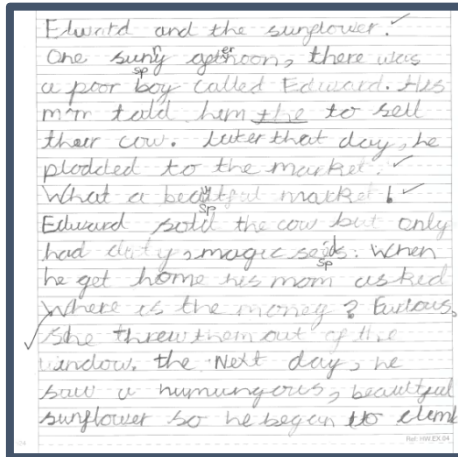 Edward and the sunflower.
One suny afternoon, there was
a poor boy called Edward. His
mom told him the to sell
their cow. Later that day, he
plodded to the market.
What a beautyful market!
Edward sold the cow but only
had dirty, magic seeds. When
he get home his mom asked
Where is the money? Furious,
She threw them out of the
window. the Next day, he
saw a humungous, beautful
sunflower so he began to climb
Ref: HW.EX.04